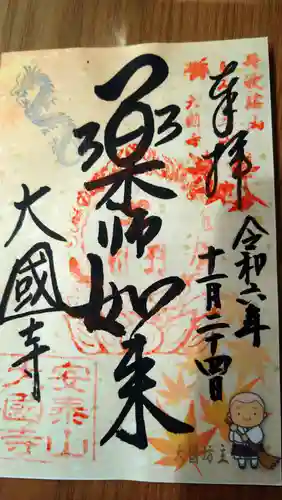 奉拝
令和六年
十一月二十四日
薬師如来
大國寺
安泰山
大國寺